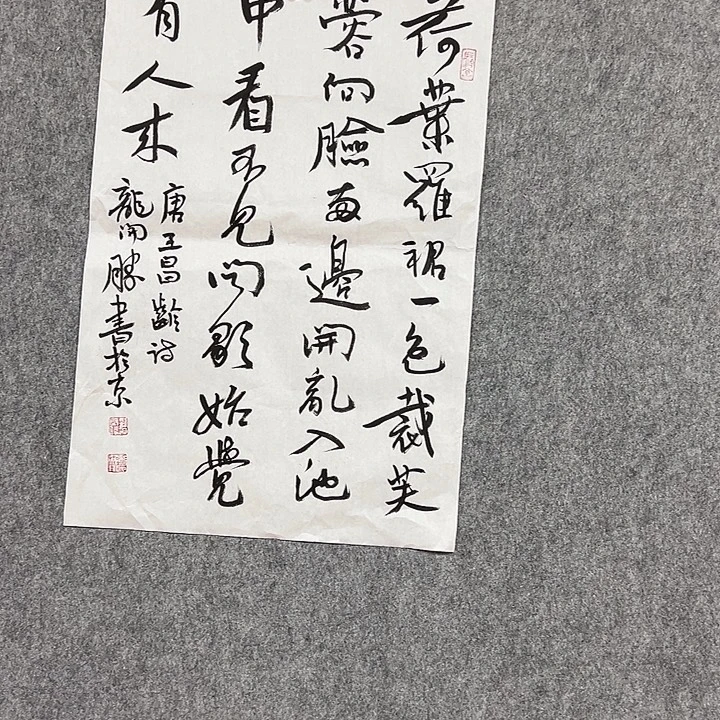 荷葉羅裙一色裁芙
蓉向臉兩邊開亂入池
中看不見聞歌始覺
有人來
唐王昌齡詩
龍開勝書於京